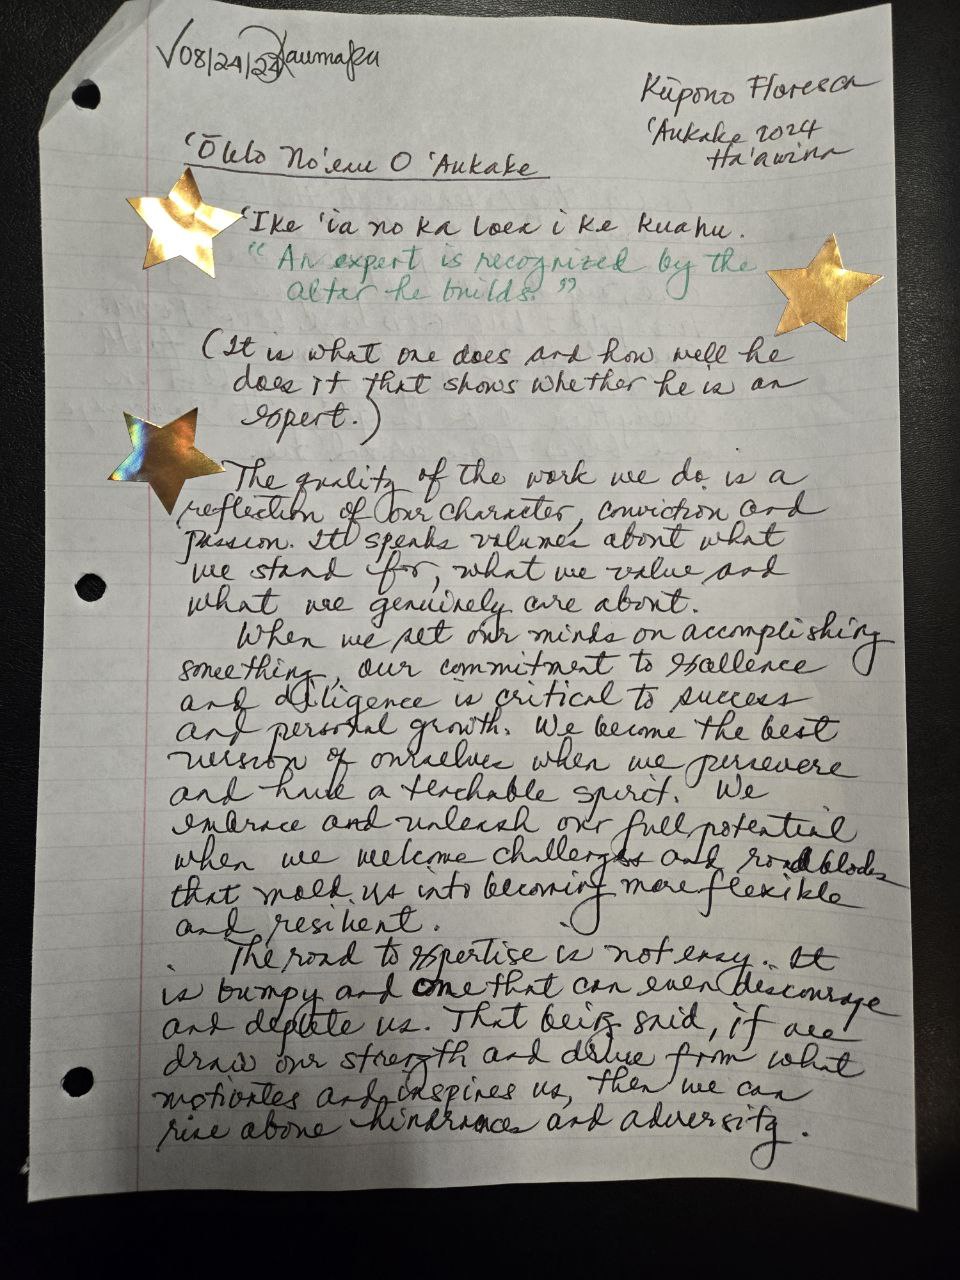 √08/24/24 Kaumaka
Kūpono Floresca
'Aukake 2024
Ha'awina
'Ōlelo No'eau O 'Aukake
'Ike 'ia no ka loea i ke kuahu.
"An expert is recognized by the
altar he builds."
(It is what one does and how well he
does it that shows whether he is an
expert.)
The quality of the work we do is a
reflection of our character, conviction and
passion. It speaks volumes about what
we stand for, what we value and
what we genuinely care about.
When we set our minds on accomplishing
something, our commitment to excellence
and diligence is critical to success
and personal growth. We become the best
version of ourselves when we persevere
and have a teachable spirit. We
embrace and unleash our full potential
when we welcome challenges and roadblocks
that mold us into becoming more flexible
and resilient.
The road to expertise is not easy. It
is bumpy and one that can even discourage
and deplete us. That being said, if we
draw our strength and drive from what
motivates and inspires us, then we can
rise above hindrances and adversity.